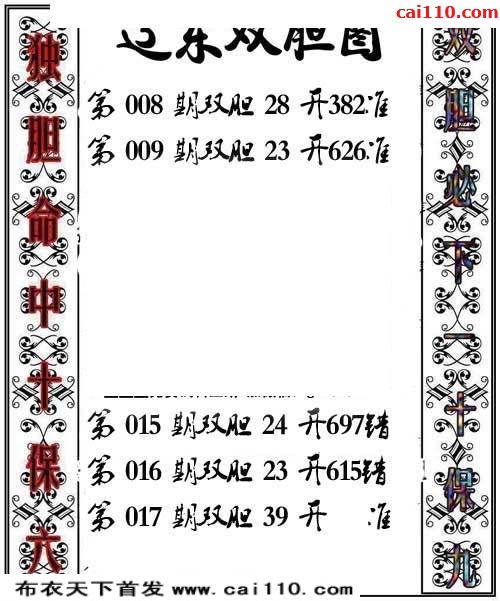 cai110.com
东双胆图
独胆命中十保六
第 008 期双胆 28 开382准
第 009 期双胆 23 开626准
第 015 期双胆 24 开697错
第 016 期双胆 23 开615错
第 017 期双胆 39 开 准
双胆必下一十保九
布衣天下首发 www.cai110.com